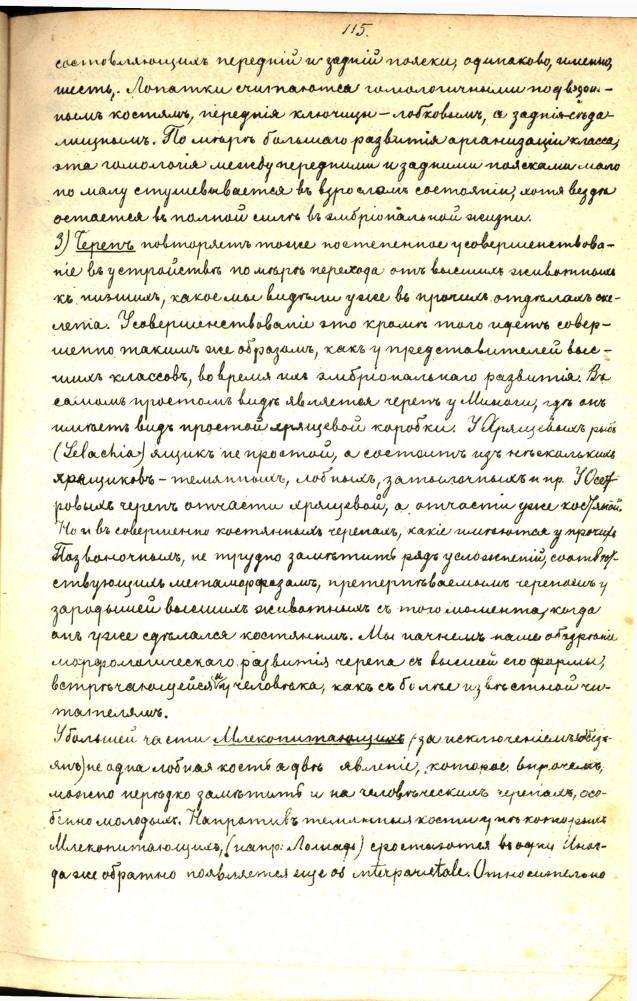 115.
составляющихъ передній и задній пояски, одинаково, именно,
шесть. Лопатки считаются гомологичными подвздош-
нымъ костямъ, переднія ключицы – лобковымъ, а заднія – сѣда-
лищнымъ. По мѣрѣ большаго развитія организаціи класса,
эта гомологія между передними и задними поясками мало
по малу стушевывается въ взросломъ состояніи, хотя вездѣ
остается въ полной силѣ въ эмбріональной жизни.
3) Черепъ повторяетъ тоже постепенное усовершенствова-
ніе въ устройствѣ по мѣрѣ перехода отъ высшихъ животныхъ
къ низшимъ, какое мы видѣли уже въ прочихъ отдѣлахъ ске-
лета. Усовершенствованіе это кромѣ того идетъ совер-
шенно такимъ же образомъ, какъ у представителей выс-
шихъ классовъ, во время ихъ эмбріональнаго развитія. Въ
самомъ простомъ видѣ является черепъ у Миноги, гдѣ онъ
имѣетъ видъ простой хрящевой коробки. У Хрящевыхъ рыбъ
(Selachia) ящикъ не простой, а состоитъ изъ нѣсколькихъ
хрящиковъ – темянныхъ, лобныхъ, затылочныхъ и пр. У Осет-
ровыхъ черепъ отчасти хрящевой, а отчасти уже костяной.
Но и въ совершенно костянныхъ черепахъ, какіе имѣются у прочихъ
Позвоночныхъ, не трудно замѣтить рядъ усложненій, соотвѣт-
ствующихъ метаморфозамъ, претерпѣваемымъ черепомъ у
зародышей высшихъ животныхъ съ того момента, когда
онъ уже сдѣлался костянымъ. Мы начнемъ наше обозрѣніе
морфологическаго развитія черепа съ высшей его формы,
встрѣчающейся у человѣка, какъ съ болѣе извѣстной чи-
тателямъ.
У большей части Млекопитающихъ (за исключеніемъ обезь-
янъ) не одна лобная кость а двѣ явленіе, которое, впрочемъ,
можно нерѣдко замѣтить и на человѣческихъ черепахъ, осо-
бенно молодыхъ. Напротивъ темянныя кости у нѣкоторыхъ
Млекопитающихъ, (напр: Лошадь) сростаются въ одну Иног-
да же обратно появляется еще os interparietale. Относительно